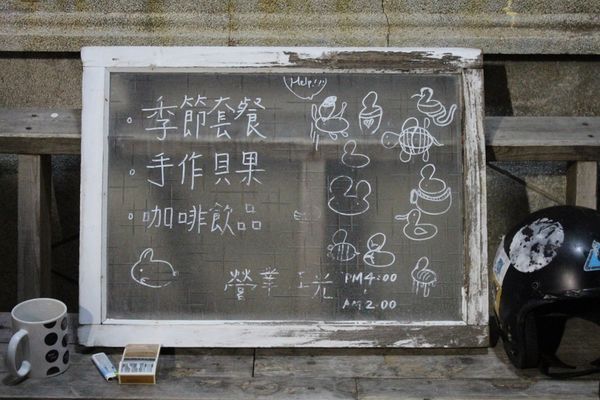 Help!!!
。季節套餐
。手作貝果
。咖啡飲品
營業
PM4:00
AM2:00